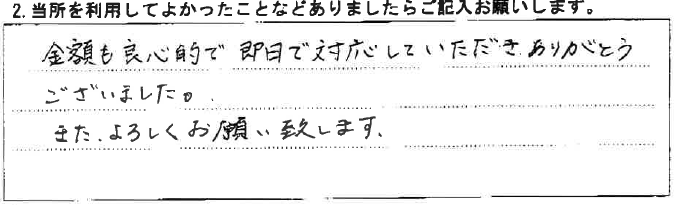 2.当所を利用してよかったことなどありましたらご記入お願いします。
金額も良心的で 即日で対応していただき ありがとう
ございました。
また、よろしくお願い致します、